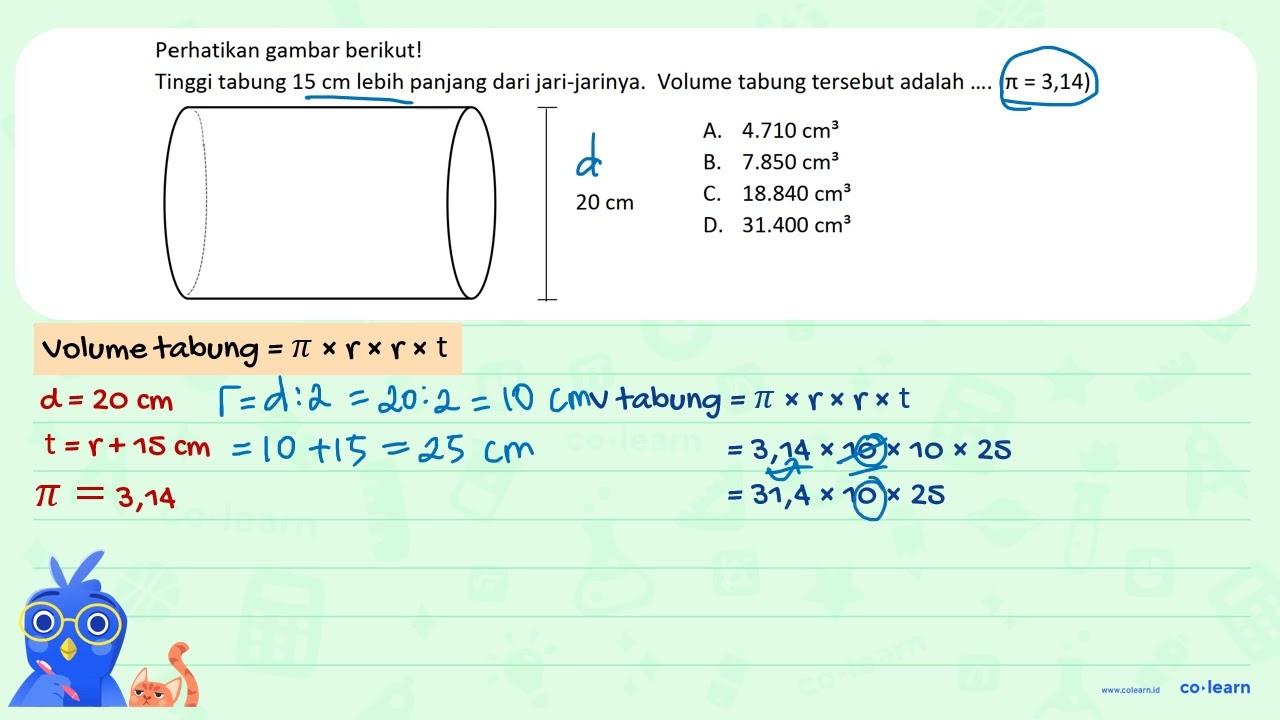 Perhatikan gambar berikut!
Tinggi tabung 15 cm lebih panjang dari jari-jarinya. Volume tabung tersebut adalah .... (π = 3,14)
d
20 cm
A. 4.710 cm³
B. 7.850 cm³
C. 18.840 cm³
D. 31.400 cm³
Volume tabung = π × r × r × t
d = 20 cm r = d : 2 = 20 : 2 = 10 cm
t = r + 15 cm = 10 + 15 = 25 cm
π = 3,14
V tabung = π × r × r × t
= 3,14 × 10 × 10 × 25
= 31,4 × 10 × 25
co·learn
co·learn
co·learn
co·learn
www.colearn.id co·learn